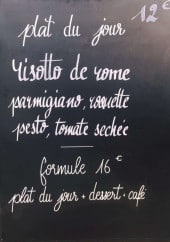 plat du jour 12€
Risotto de rome
parmigiano, roquette
pesto, tomate sechée
formule 16 €
plat du jour + dessert + café